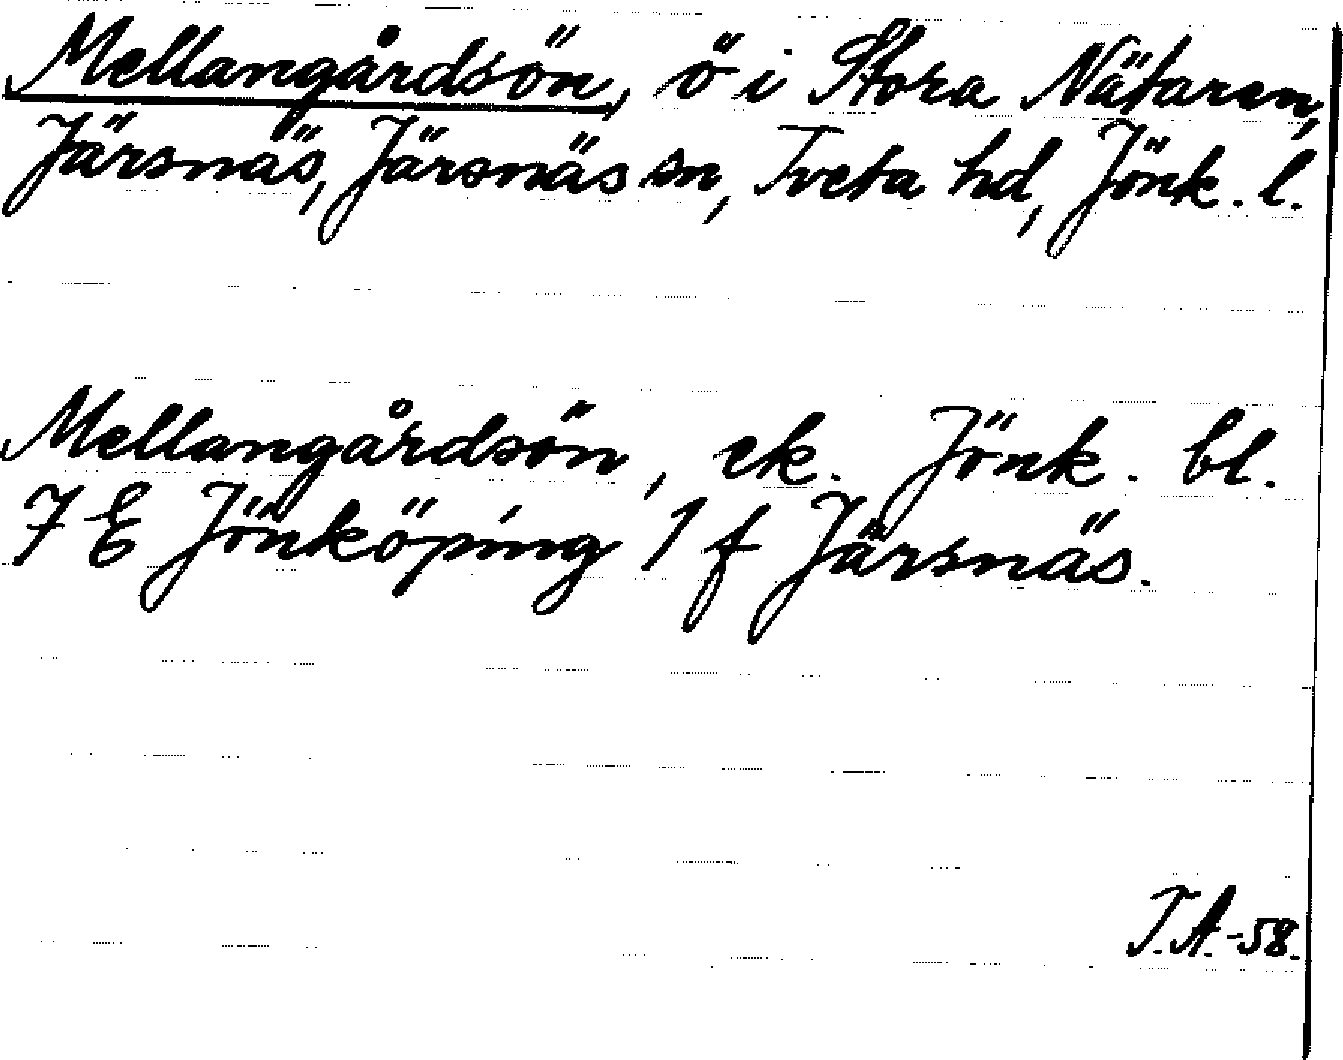 Mellangårdsön, ö i Stora Nätaren,
Järsnäs, Järsnäs sn, Tveta hd, Jönk. l.
Mellangårdsön, ek. Jönk. bl.
7 E Jönköping 1 f Järsnäs.
T.A.-58.